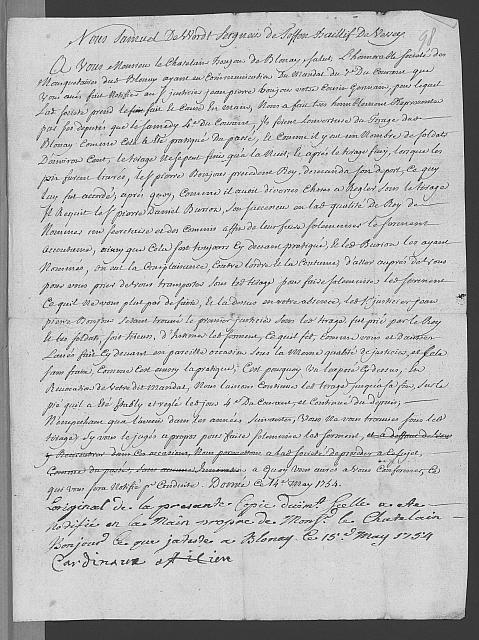 98
Nous Samuel De Werdt Seigneur de Toffen Baillif De Vevey
A Vous Monsieur le Chatelain Bonjon de Blonay, Salut. L'honnorable Société des
Mousquetaires dud. Blonay ayant eu Communication du Mandat du du Courant que
Vous aviés fait Notifier au Sr. justicier jean pierre Bonjon votre Cousin Germain, par lequel
Lad. Société prend le fait & le Cause En main, Nous a fait tres humblement Representer
par ses deputés que le Samedy 4e. du Courant, Ils firent l'ouverture du Tirage dud.
Blonay Comme Cela s'est pratiqué du passé, & Comme il y eut un Nombre de Soldats
D'environ Cent, le tirage Ne se peut finir que la Nuit, & après le tirage finy, lorsque les
prix furent livrés, le Sr. pierre Bonjon president Roy, demanda Son depot, Ce quy
Luy fut accordé; après quoy, Comme il avoit diverses Choses a Regler Sous le tirage
Il Requit le Sr. pierre Daniel Burion, Son Successeur en lad. qualité de Roy de
Nommer un Secretaire et des Commis affin de leur faire Solemniser le Serment
accoutumé, ainsy que Cela S'est toujours Cy devant pratiqué, & led. Burion les ayant
Nommés, on eut la Complaisance, Contre l'ordre & la Coutume d'aller auprès de Vous
pour vous prier de vous transporter Sous led. tirage pour faire Solemniser led. Serment
Ce qu'il Ne vous plut pas de faire, & la dessus en votre absence, led. Sr. justicier jean
pierre Bonjon S'etant trouvé le premier justicier Sous led. tirage, fut prié par le Roy
& les Soldats, Soit tireurs, d'intimer led. Serment, Ce qu'il fit, Comme vous et D'autres
L'avés fait Cy devant en pareille occasion Sous la Meme qualité de justicier, et Cela
Sans faute, Comme C'est aussy la pratique; C'est pourquoy Vu l'exposé Cy dessus, En
Revocation de Votre dit Mandat, Nous laissons Continuer led. tirage jusqu'a Sa fin, Sur le
pié qu'il a Eté établi et réglé led. jour 4e. Du Courant, et Continué du depuis;
N'empechant que l'avenir dans les années Suivantes, Si Vous Vous trouvés Sous led.
tirage, Sy vous le jugés a propos pour faire Solemniser led. Serment, et a deffaut de vous
y Rencontrer dans Ces occasions, Nous permettons a lad. Société de proceder a Ce Sujet,
Comme du passé, Sans aucune Innovation a Quoy vous aurés a Vous Conformer, Ce
que vous Sera Notifié pr. Conduite. Donné ce 14e. May 1754.
L'original de la presente Copie Duëmt. Scellé a eté
Notifiée en la Main propre de Monsr. le Chatelain
Bonjour Ce que j'atteste a Blonay. Ce 15e. May 1754
Cardinaux officier